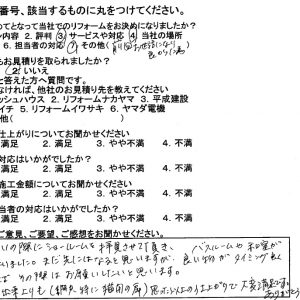 番号、該当するものに丸をつけてください。
めてとなって当社でのリフォームをお決めになりましたか?
ン内容 2. 評判 3. サービスや対応 4. 当社の場所
6. 担当者の対応 7. その他(前回お世話になり
もお見積りを取られましたか?
2. いいえ
と答えた方へ質問です。
なければ、他社のお見積り先を教えてください
ッシュハウス 2. リフォームナカヤマ 3. 平成建設
イチ 5. リフォームイワサキ 6. ヤマダ電機
他(
仕上がりについてお聞かせください
満足 2. 満足 3. やや不満 4. 不満
対応はいかがでしたか?
満足 2. 満足 3. やや不満 4. 不満
施工金額についてお聞かせください
満足 2. 満足 3. やや不満 4. 不満
当者の対応はいかがでしたか?
満足 2. 満足 3. やや不満 4. 不満
ご意見、ご要望、ご感想をお聞かせください。
の際にショールームを拝見させて頂き、バスルームや和室が
その際はお願いしたいと思います。
思った以上の
大変満足です。
ありがとう